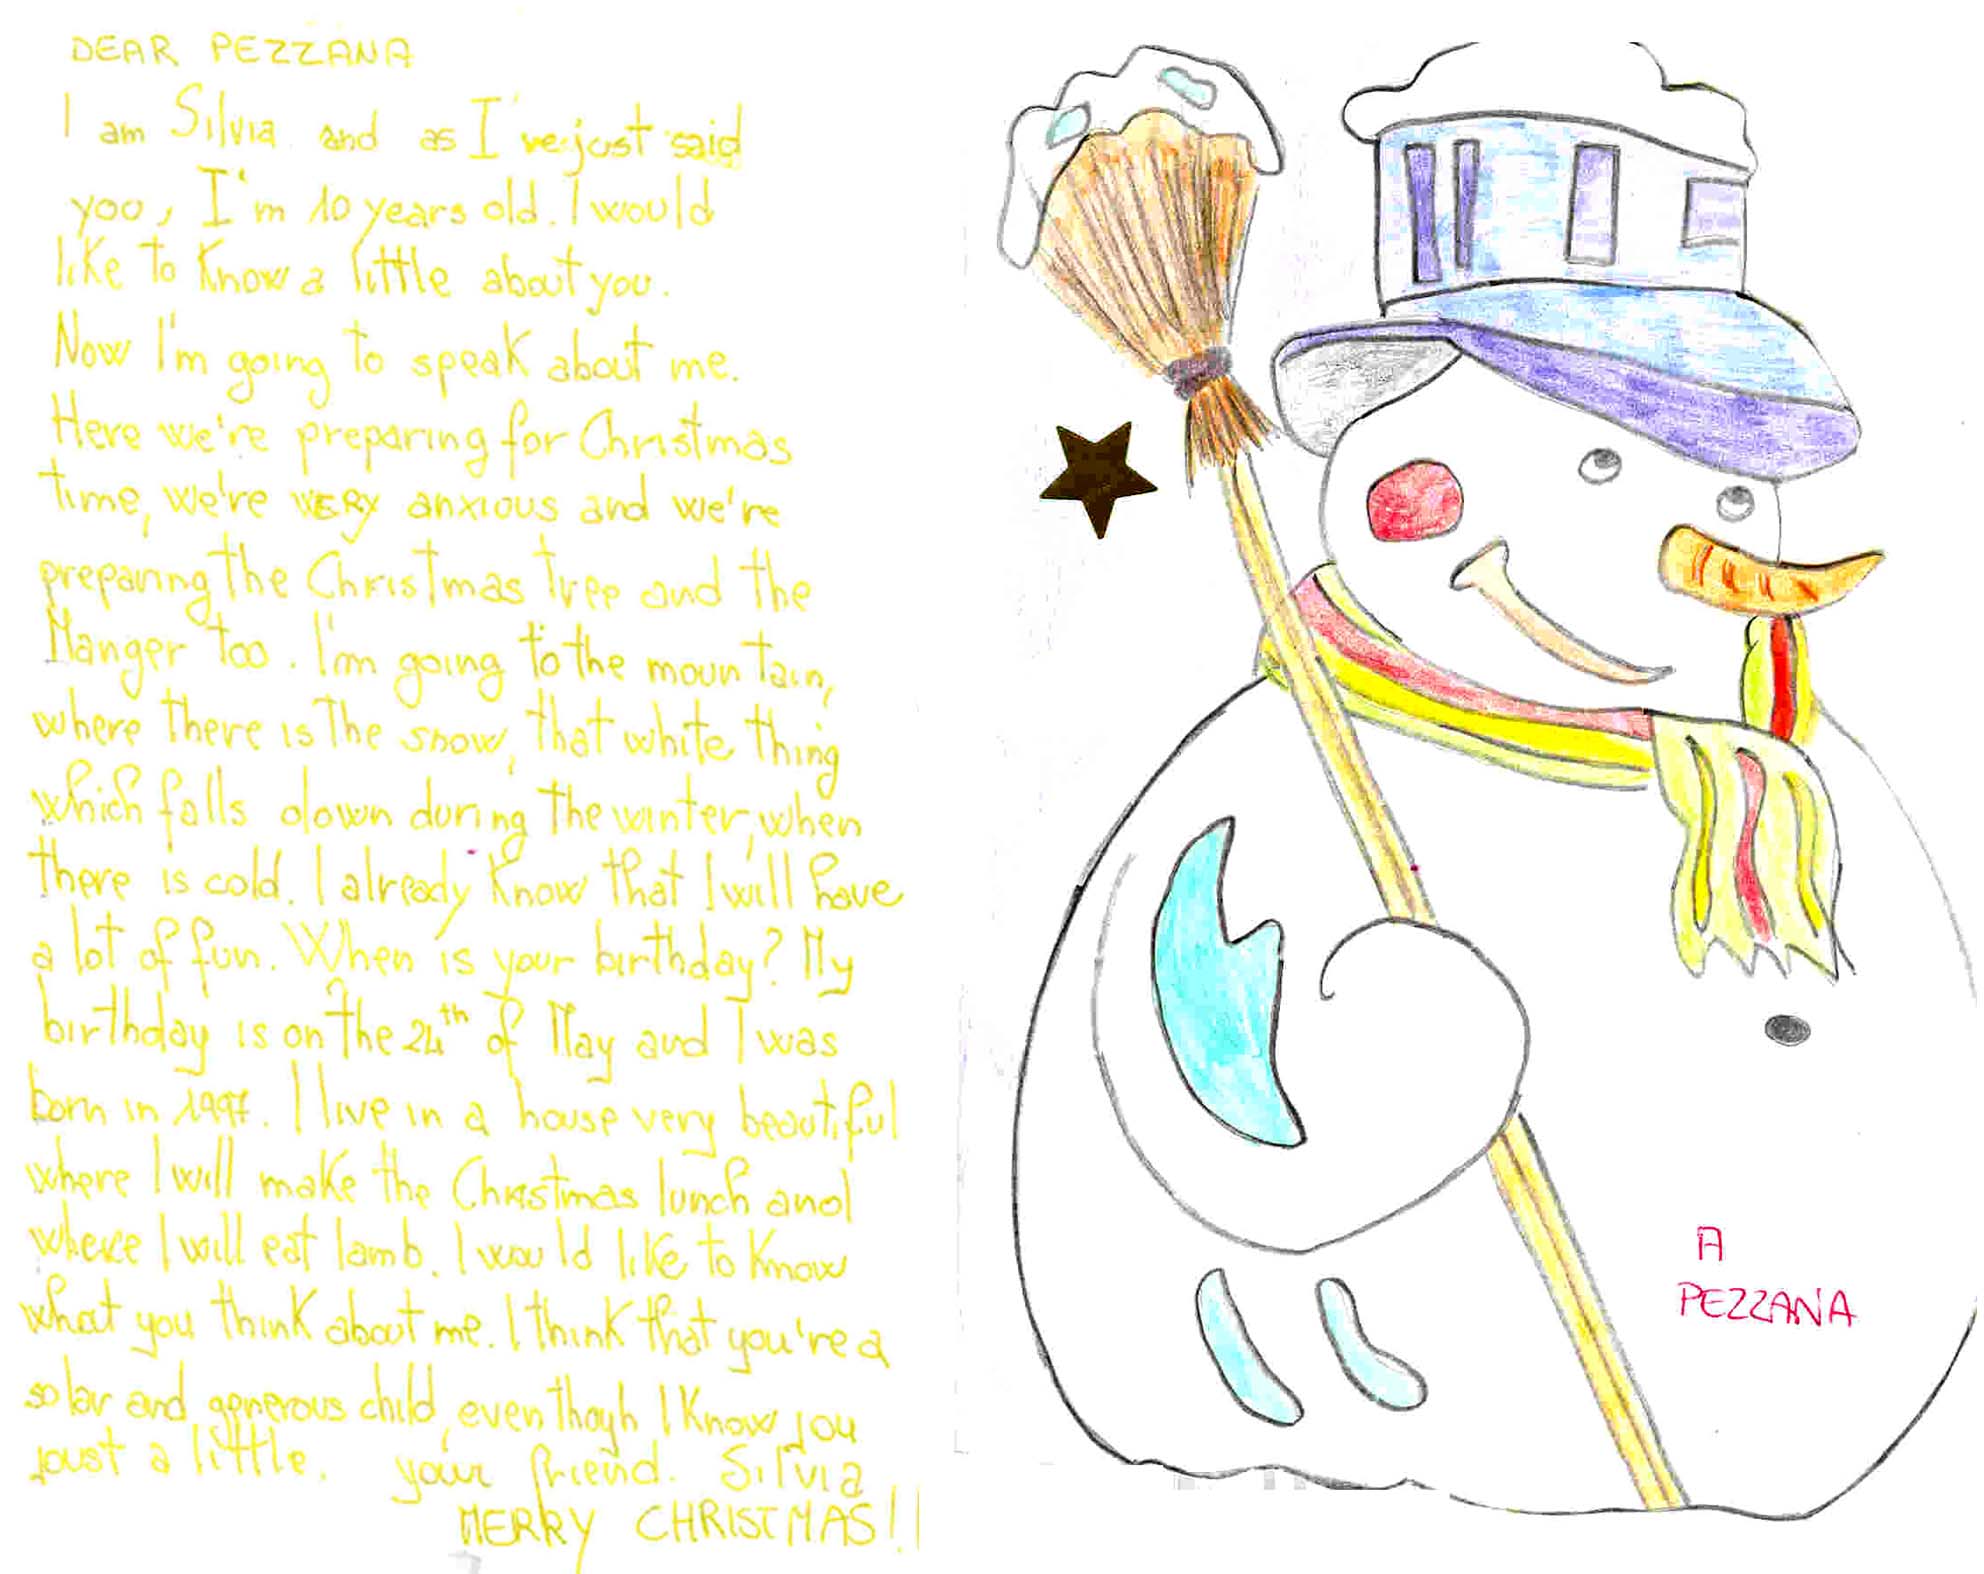 DEAR PEZZANA
I am Silvia and as I've just said
you, I'm 10 years old. I would
like to know a little about you.
Now I'm going to speak about me.
Here we're preparing for Christmas
time, we're VERY anxious and we're
preparing the Christmas tree and the
Manger too. I'm going to the mountain,
where there is the snow, that white thing
which falls down during the winter, when
there is cold. I already know that I will have
a lot of fun. When is your birthday? My
birthday is on the 24th of May and I was
born in 1997. I live in a house very beautiful
where I will make the Christmas lunch and
where I will eat lamb. I would like to know
what you think about me. I think that you're a
solar and generous child, even though I know you
just a little. your friend. Silvia
MERRY CHRISTMAS!
A
PEZZANA